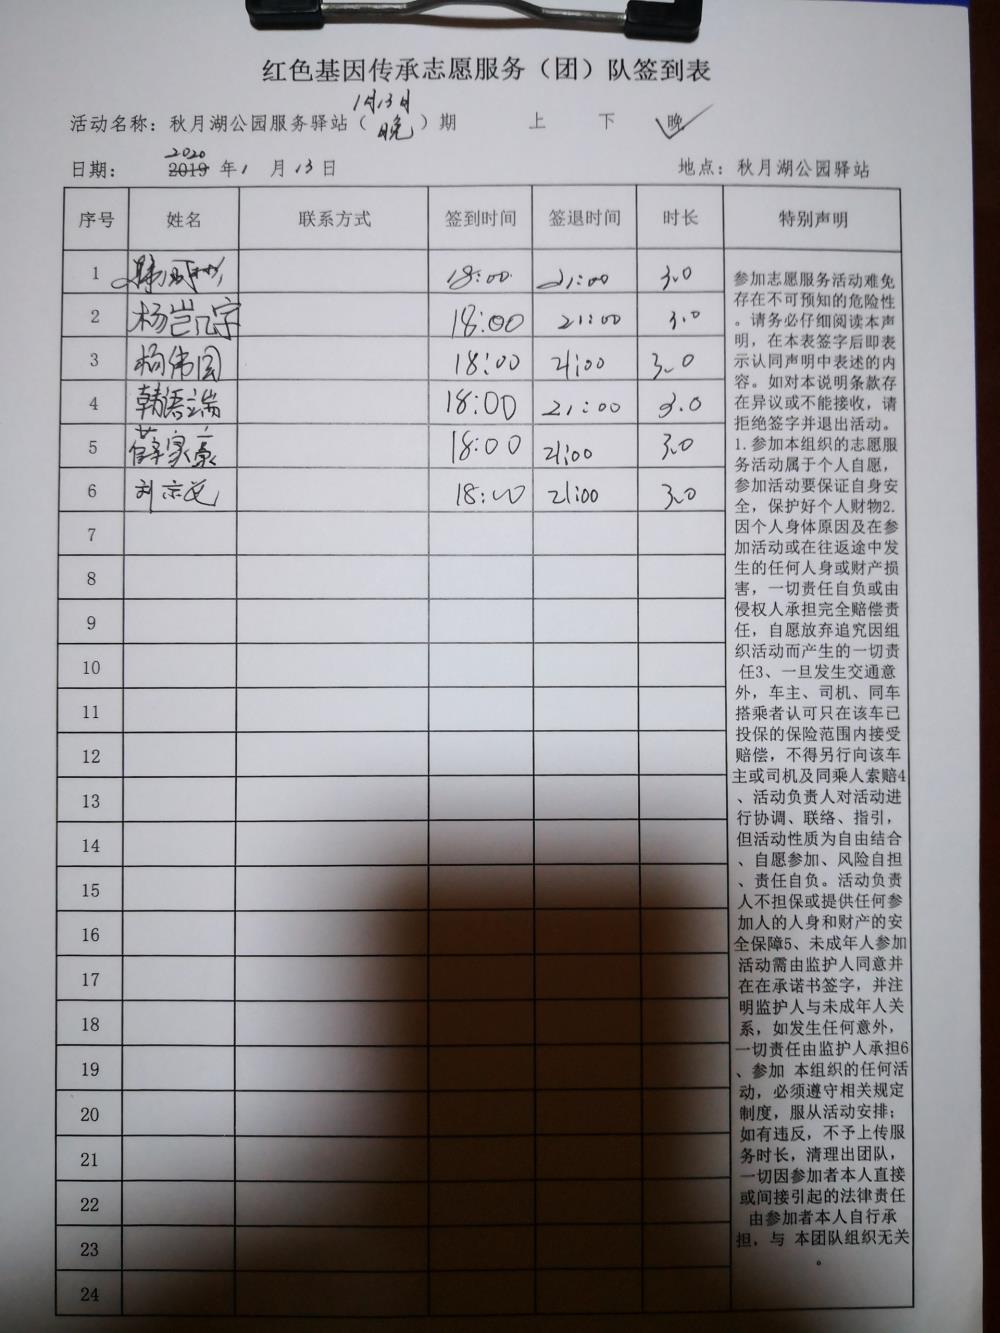 红色基因传承志愿服务（团）队签到表
1月13日
活动名称：秋月湖公园服务驿站（晚）期 上 下 晚
2020
日期： 2019 年1 月13日 地点：秋月湖公园驿站
序号 姓名 联系方式 签到时间 签退时间 时长 特别声明
1 18:00 21:00 3.0
2 杨岂宇 18:00 21:00 3.0
3 杨伟国 18:00 21:00 3.0
4 韩语端 18:00 21:00 3.0
5 薛家豪 18:00 21:00 3.0
6 刘京 18:00 21:00 3.0
7
8
9
10
11
12
13
14
15
16
17
18
19
20
21
22
23
24
参加志愿服务活动难免
存在不可预知的危险性
。请务必仔细阅读本声
明，在本表签字后即表
示认同声明中表述的内
容。如对本说明条款存
在异议或不能接收，请
拒绝签字并退出活动。
1.参加本组织的志愿服
务活动属于个人自愿，
参加活动要保证自身安
全，保护好个人财物2.
因个人身体原因及在参
加活动或在往返途中发
生的任何人身或财产损
害，一切责任自负或由
侵权人承担完全赔偿责
任，自愿放弃追究因组
织活动而产生的一切责
任3、一旦发生交通意
外，车主、司机、同车
搭乘者认可只在该车已
投保的保险范围内接受
赔偿，不得另行向该车
主或司机及同乘人索赔4
、活动负责人对活动进
行协调、联络、指引，
但活动性质为自由结合
、自愿参加、风险自担
、责任自负。活动负责
人不担保或提供任何参
加人的人身和财产的安
全保障5、未成年人参加
活动需由监护人同意并
在在承诺书签字，并注
明监护人与未成年人关
系，如发生任何意外，
一切责任由监护人承担6
、参加 本组织的任何活
动，必须遵守相关规定
制度，服从活动安排；
如有违反，不予上传服
务时长，清理出团队，
一切因参加者本人直接
或间接引起的法律责任
由参加者本人自行承
担，与 本团队组织无关
。